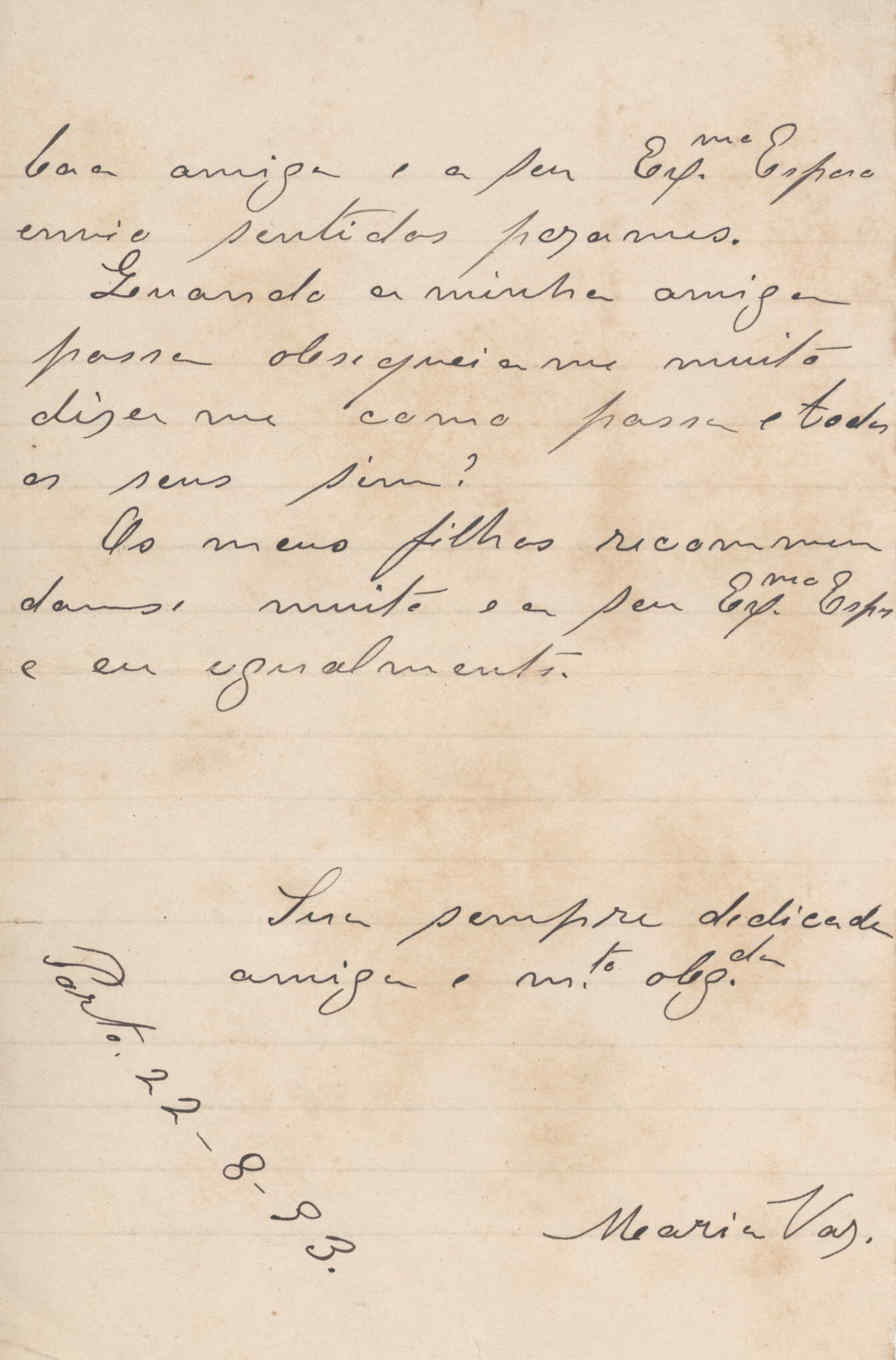 boa amiga e a seu Ex.mo Esposo
envio sentidos pezames.
Quando a minha amiga
possa obsequeia me muito
dizer me como passa e todos
os seus sim?
Os meus filhos recommen
damse muito e a seu Ex.mo Espos
e eu egualmente.
Sua sempre dedicada
amiga e m.to obg.da
Porto. 22-8-93.
Maria Vaz.